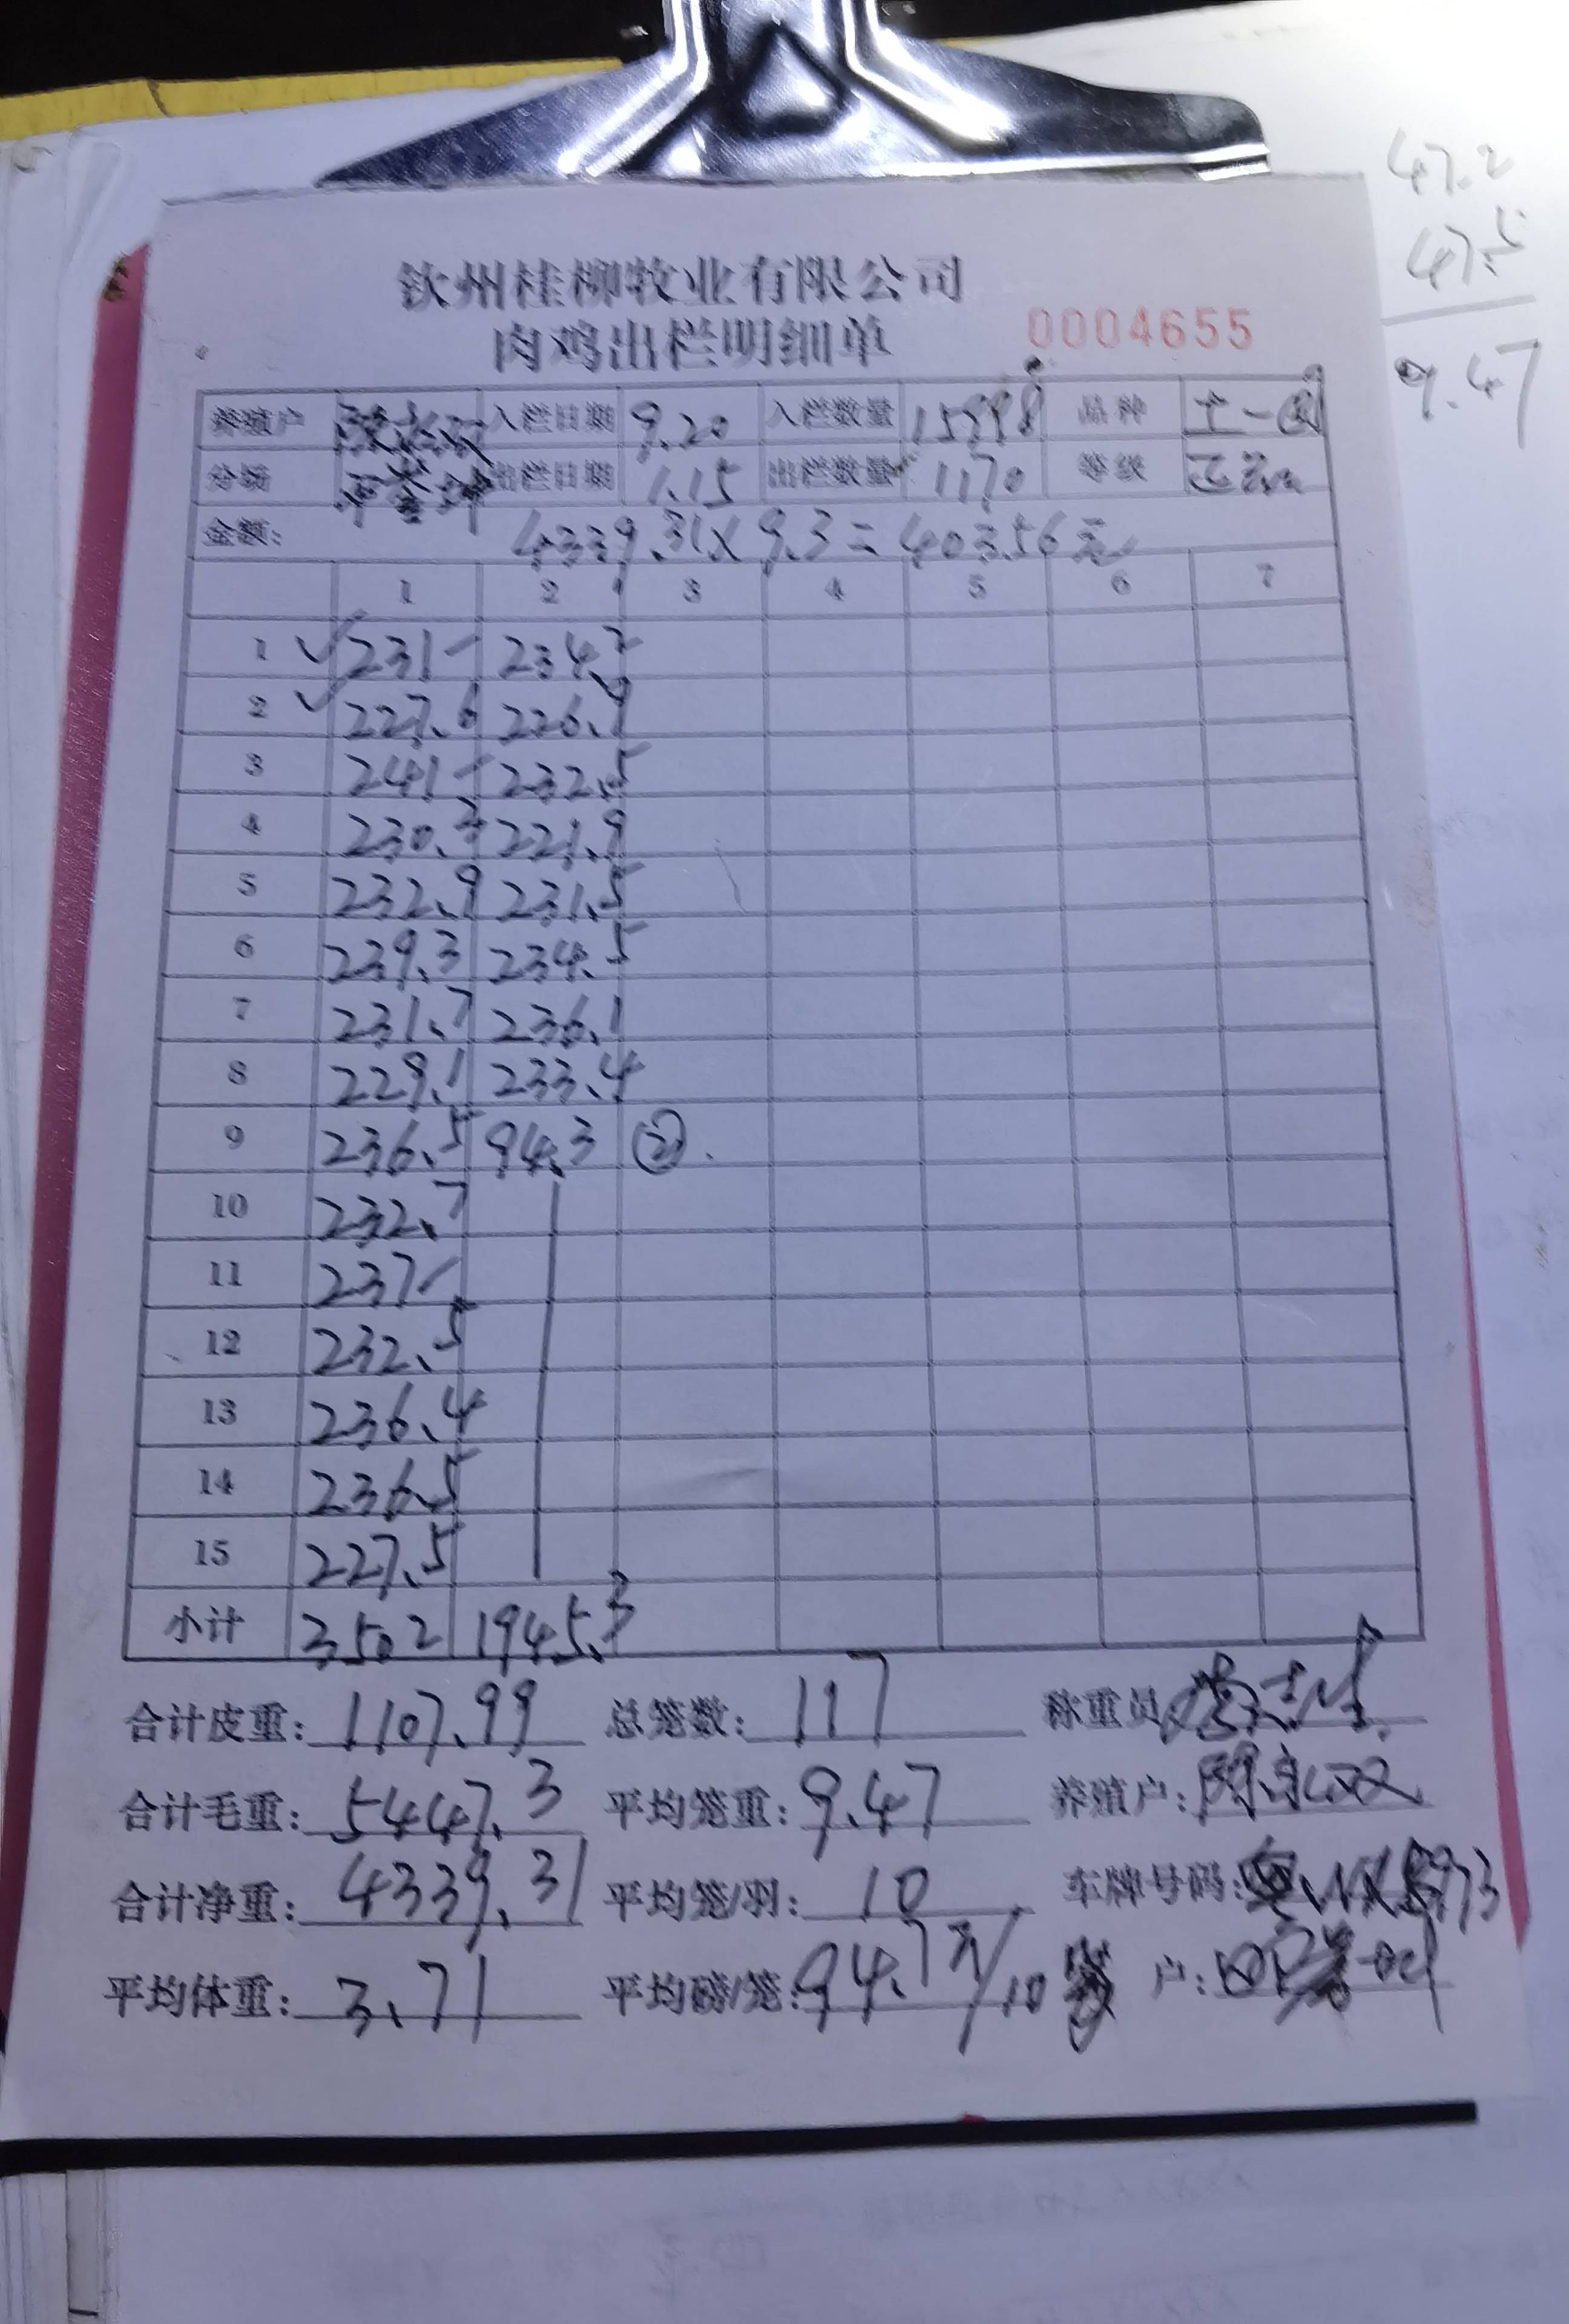 47.2
47.5
9.47
钦州桂柳牧业有限公司
肉鸡出栏明细单 0004655
养殖户 入栏日期 9.20 入栏数量 15998 品种 土一
分场 出栏日期 1.15 出栏数量 1170 等级 正品
金额: 4339.31×9.3=40356元
1 2 3 4 5 6 7
1 231- 234.2
2 227.6 226.9
3 241- 232.5
4 230.3 221.9
5 232.9 231.5
6 239.3 234.5
7 231.7 236.1
8 229.1 233.4
9 236.5 94.3 ②.
10 232.7
11 237-
12 232.5
13 236.4
14 236.5
15 227.5
小计 3502 1945.3
合计皮重: 1107.99 总笼数: 117 称重员
合计毛重: 5447.3 平均笼重: 9.47 养殖户: 陈永双
合计净重: 4339.31 平均笼/羽: 10 车牌号码:
平均体重: 3.71 平均磅/笼: 94.7斤/10 户: